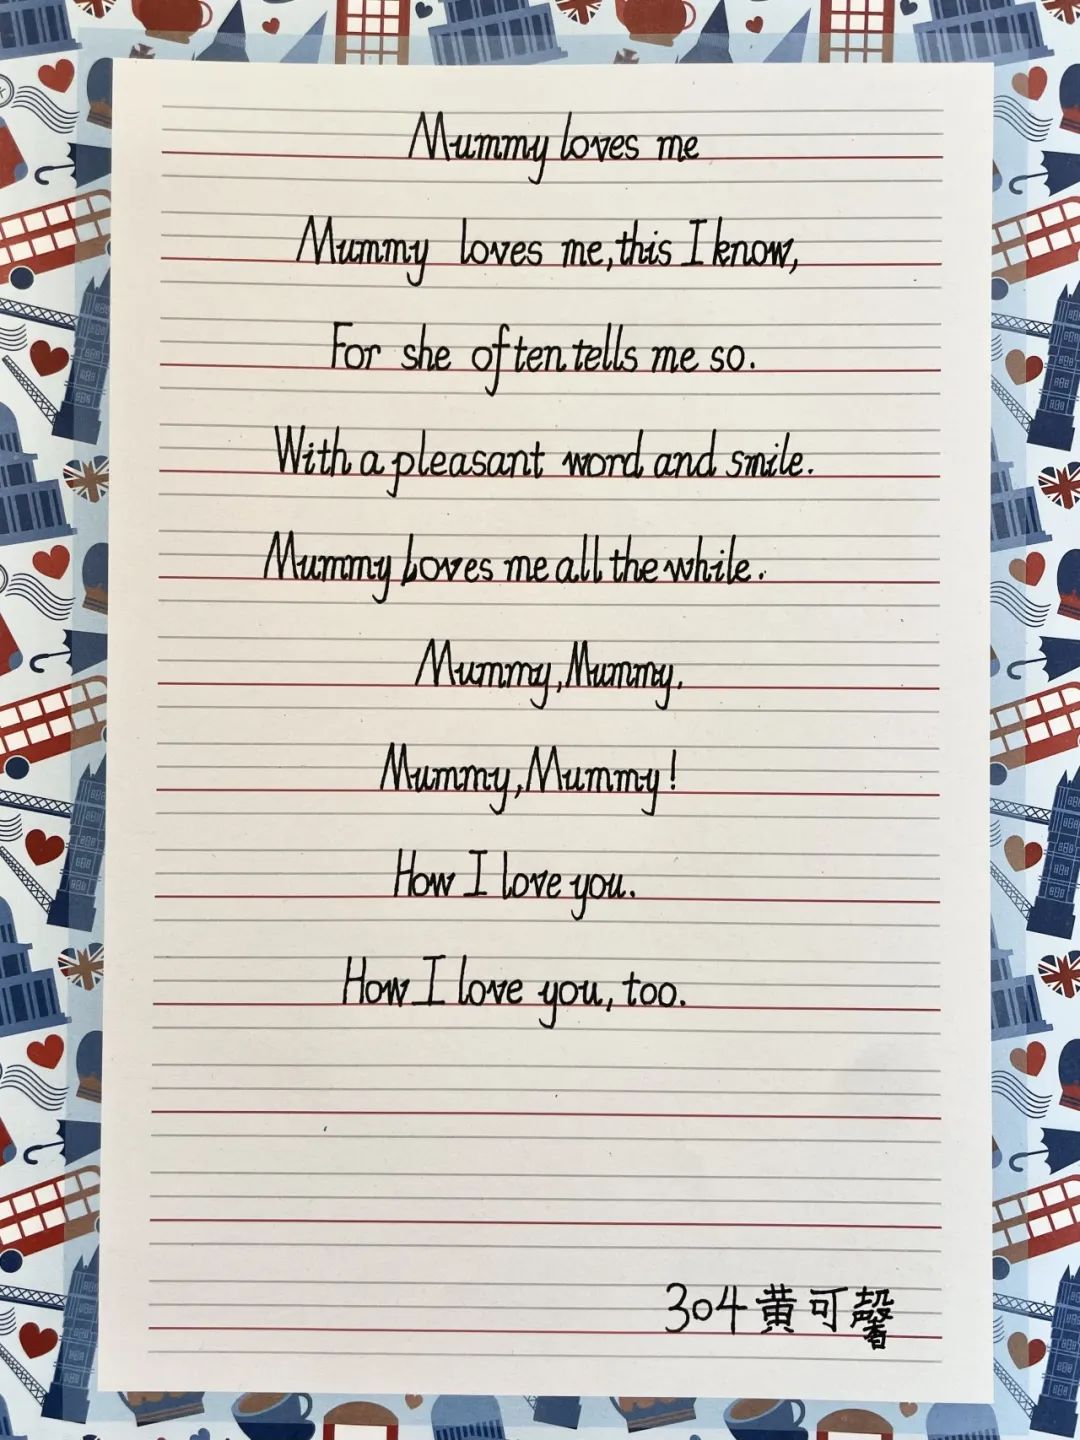 Mummy loves me
Mummy loves me, this I know,
For she often tells me so.
With a pleasant word and smile.
Mummy loves me all the while.
Mummy, Mummy.
Mummy, Mummy!
How I love you.
How I love you, too.
304 黄可馨